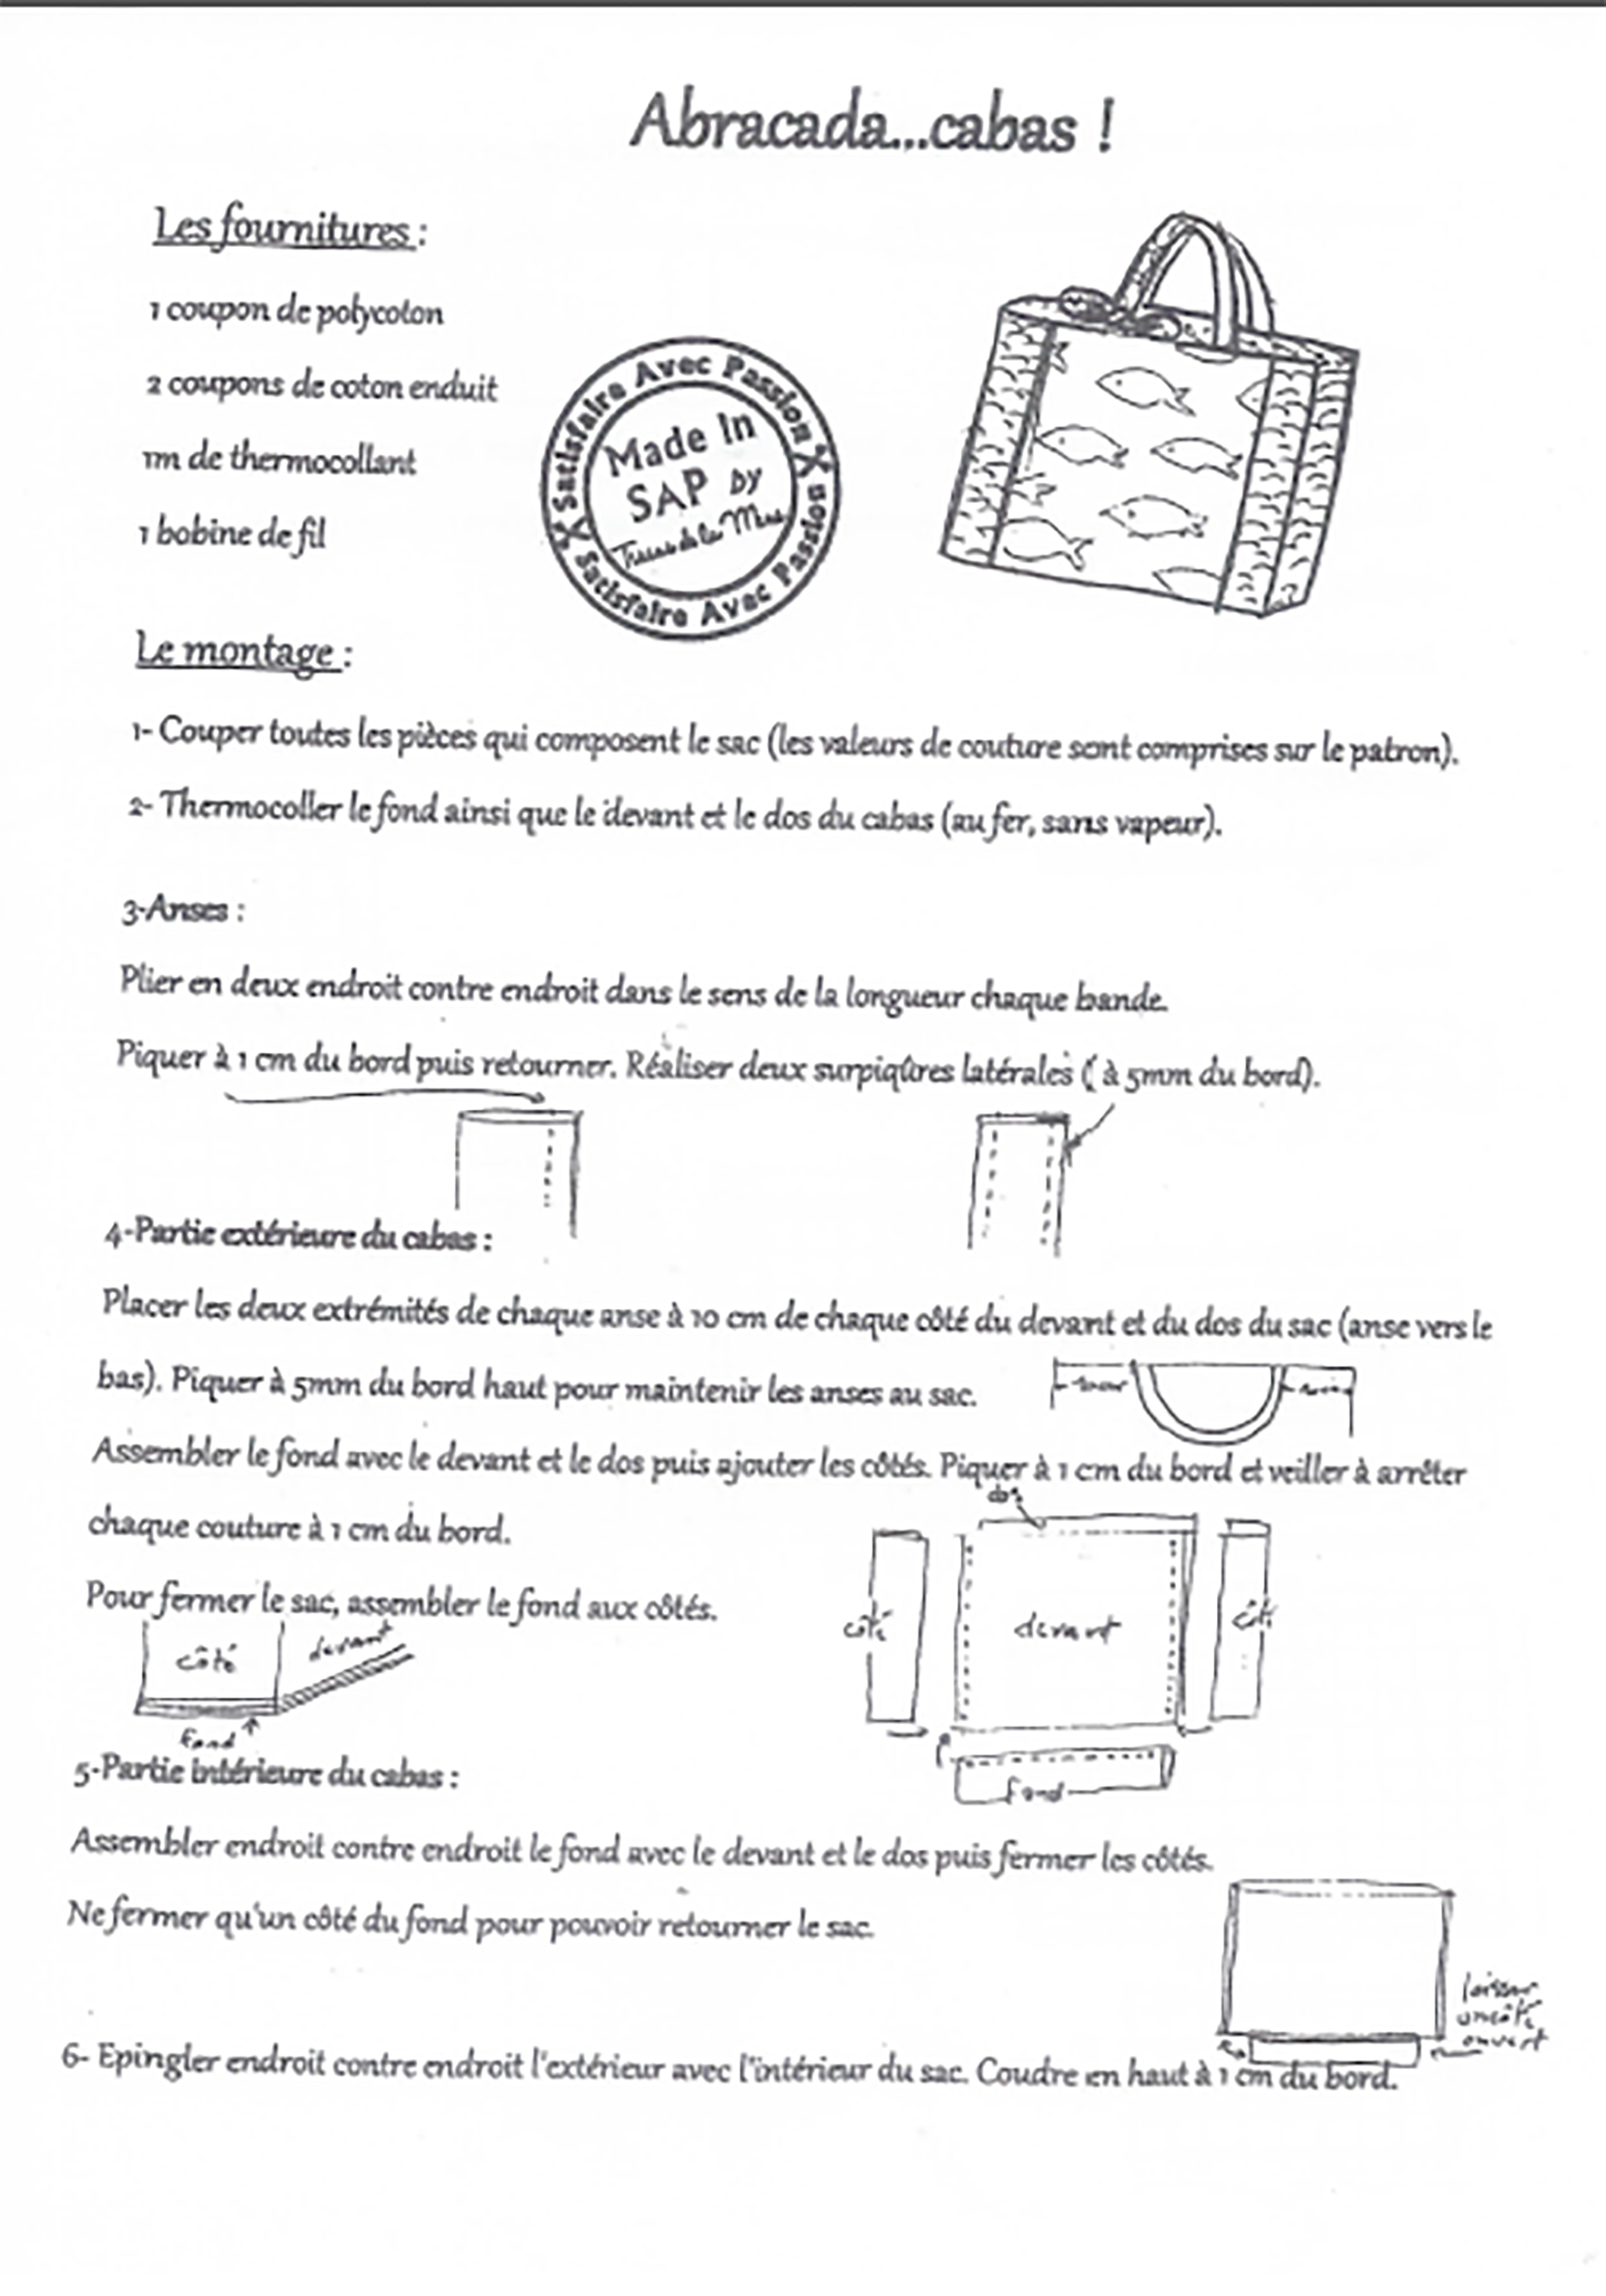 Abracada...cabas !
Les fournitures :
1 coupon de polycoton
2 coupons de coton enduit
1m de thermocollant
1 bobine de fil
Satisfaire Avec Passion
Made In
SAP by
Satisfaire Avec Passion
Le montage :
1- Couper toutes les pièces qui composent le sac (les valeurs de couture sont comprises sur le patron).
2- Thermocoller le fond ainsi que le devant et le dos du cabas (au fer, sans vapeur).
3-Anses :
Plier en deux endroit contre endroit dans le sens de la longueur chaque bande.
Piquer à 1 cm du bord puis retourner. Réaliser deux surpiqûres latérales ( à 5mm du bord).
4-Partie extérieure du cabas :
Placer les deux extrémités de chaque anse à 10 cm de chaque côté du devant et du dos du sac (anse vers le
bas). Piquer à 5mm du bord haut pour maintenir les anses au sac.
Assembler le fond avec le devant et le dos puis ajouter les côtés. Piquer à 1 cm du bord et veiller à arrêter
chaque couture à 1 cm du bord.
dos
côté
devant
côté
fond
Pour fermer le sac, assembler le fond aux côtés.
côté
devant
fond
5-Partie intérieure du cabas :
Assembler endroit contre endroit le fond avec le devant et le dos puis fermer les côtés.
Ne fermer qu'un côté du fond pour pouvoir retourner le sac.
laisser
un côté
ouvert
6- Epingler endroit contre endroit l'extérieur avec l'intérieur du sac. Coudre en haut à 1 cm du bord.